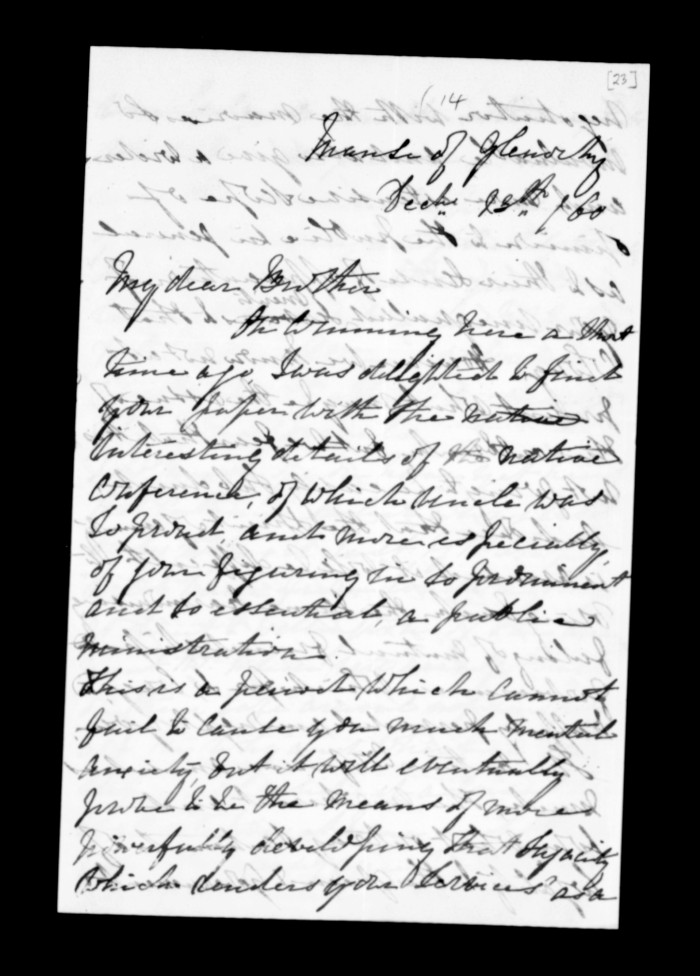 [23]
(14
Manse of Glenorchy
Decr. 12th /60
My dear Brother
On Comming here a short
time ago, I was delighted to find
your paper with the native
interesting details of the native
Conference, of which Uncle was
so proud, and more especially
of your figuring in so prominent
and so essential, a public
ministration.
This is a period which cannot
fail to cause you much mental
anxiety but it will eventually
prove to be the means of more
powerfully developing that
which renders your services as a